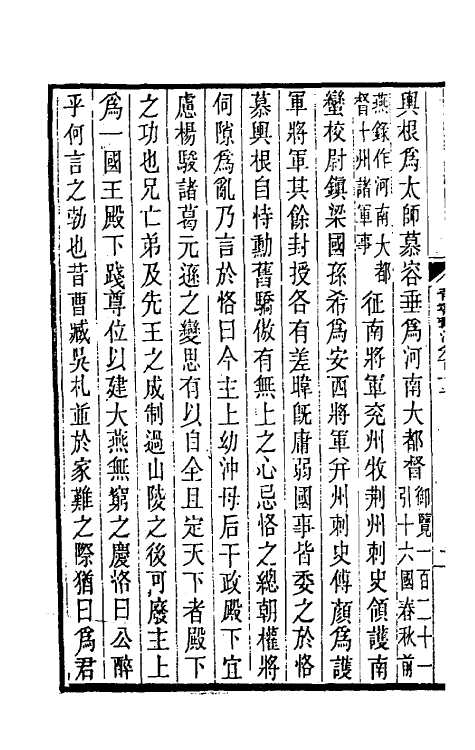 輿根爲太師慕容垂爲河南大都督御覽一百二十一引十六國春秋前
燕錄作河南大都督十州諸軍事征南將軍兖州牧荆州刺史領護南
蠻校尉鎮梁國孫希爲安西將軍幷州刺史傅顏爲護
軍將軍其餘封授各有差暐旣庸弱國事皆委之於恪
慕輿根自恃勳舊驕傲有無上之心忌恪之總朝權將
伺隙爲亂乃言於恪曰今主上幼沖母后干政殿下宜
慮楊駿諸葛元遜之變思有以自全且定天下者殿下
之功也兄亡弟及先王之成制過山陵之後可廢主上
爲一國王殿下踐尊位以建大燕無窮之慶恪曰公醉
乎何言之勃也昔曹臧吳札並於家難之際猶曰爲君